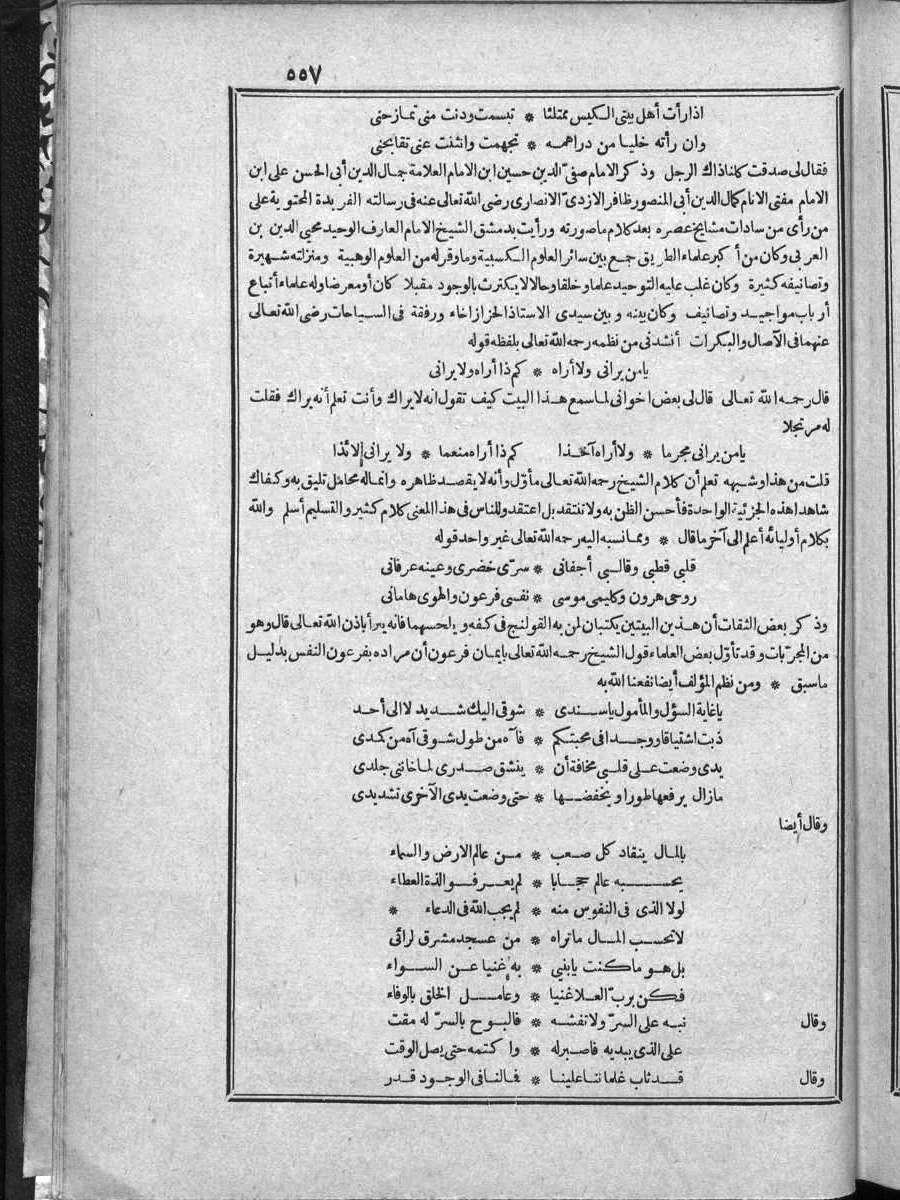 ٥٥٧
اذا رأت أهل بيتى الكيس ممتلئا * تبسمت ودنت منى تمازحنى
وان رأته خليا من دراهمه * تجهمت وانثنت عنى تقابحنى
فقال لى صدقت كلنا ذاك الرجل وذكر الامام صفىّ الدين حسين ابن الامام العلامة جمال الدين أبى الحسن على ابن
الامام مفتى الانام كمال الدين أبى المنصور ظافر الازدىّ الانصارى رضى الله تعالى عنه فى رسالته الفريدة المحتوية على
من رأى من سادات مشايخ عصره بعد كلام ما صورته ورأيت بدمشق الشيخ الامام العارف الوحيد محيى الدين بن
العربى وكان من أكبر علماء الطريق جمع بين سائر العلوم الكسبية وما وقر له من العلوم الوهبية ومنزلته شهيرة
وتصانيفه كثيرة وكان غلب عليه التوحيد علما وخلقا وحالا لا يكترث بالوجود مقبلا كان أو معرضا وله علماء أتباع
أرباب مواجيد وتصانيف وكان بينه وبين سيدى الاستاذ الخراز اخاء ورفقة فى السياحات رضى الله تعالى
عنهما فى الآصال والبكرات أنشدنى من نظمه رحمه الله تعالى بلفظه قوله
يا من يرانى ولا أراه * كم ذا أراه ولا يرانى
قال رحمه الله تعالى قال لى بعض اخوانى لما سمع هذا البيت كيف تقول انه لا يراك وأنت تعلم أنه يراك فقلت
له مرتجلا
يا من يرانى مجرما * ولا أراه آخذا كم ذا أراه منعما * ولا يرانى لائذا
قلت من هذا وشبهه تعلم أن كلام الشيخ رحمه الله تعالى مأوّل وأنه لا يقصد ظاهره وانما له محامل تليق به وكفاك
شاهدا هذه الجزئية الواحدة فأحسن الظن به ولا تنتقد بل اعتقد وللناس فى هذا المعنى كلام كثير والتسليم أسلم والله
بكلام أوليائه أعلم الى آخر ما قال * ومما نسبه اليه رحمه الله تعالى غير واحد قوله
قلبى قطبى وقالبى أجفانى * سرّى خضرى وعينه عرفانى
روحى هرون وكليمى موسى * نفسى فرعون والهوى هامانى
وذكر بعض الثقات أن هذين البيتين يكتبان لمن به القولنج فى كفه ويلحسهما فانه يبرأ باذن الله تعالى قال وهو
من المجرّبات وقد تأوّل بعض العلماء قول الشيخ رحمه الله تعالى بايمان فرعون أن مراده بفرعون النفس بدليل
ما سبق * ومن نظم المؤلف أيضا نفعنا الله به
يا غاية السؤل والمأمول يا سندى * شوقى اليك شديد لا الى أحد
ذبت اشتياقا ووجدا فى محبتكم * فآه من طول شوقى آه من كمدى
يدى وضعت على قلبى مخافة أن * ينشق صدرى لما خاننى جلدى
مازال يرفعها طورا ويخفضها * حتى وضعت يدى الآخرى تشد يدى
وقال أيضا
بالمال ينقاد كل صعب * من عالم الارض والسماء
يحسبه عالم حجابا * لم يعرفوا لذة العطاء
لولا الذى فى النفوس منه * لم يجب الله فى الدعاء *
لا تحسب المال ما تراه * من عسجد مشرق لرائى
بل هو ما كنت يا بنيى * به غنيا عن السواء
فكن بربّ العلا غنيا * وعامل الخلق بالوفاء
وقال نبه على السرّ ولا تفشه * فالبوح بالسرّ له مقت
على الذى يبديه فاصبر له * واكتمه حتى يصل الوقت
وقال قد ثاب غلماننا علينا * فما لنا فى الوجود قدر